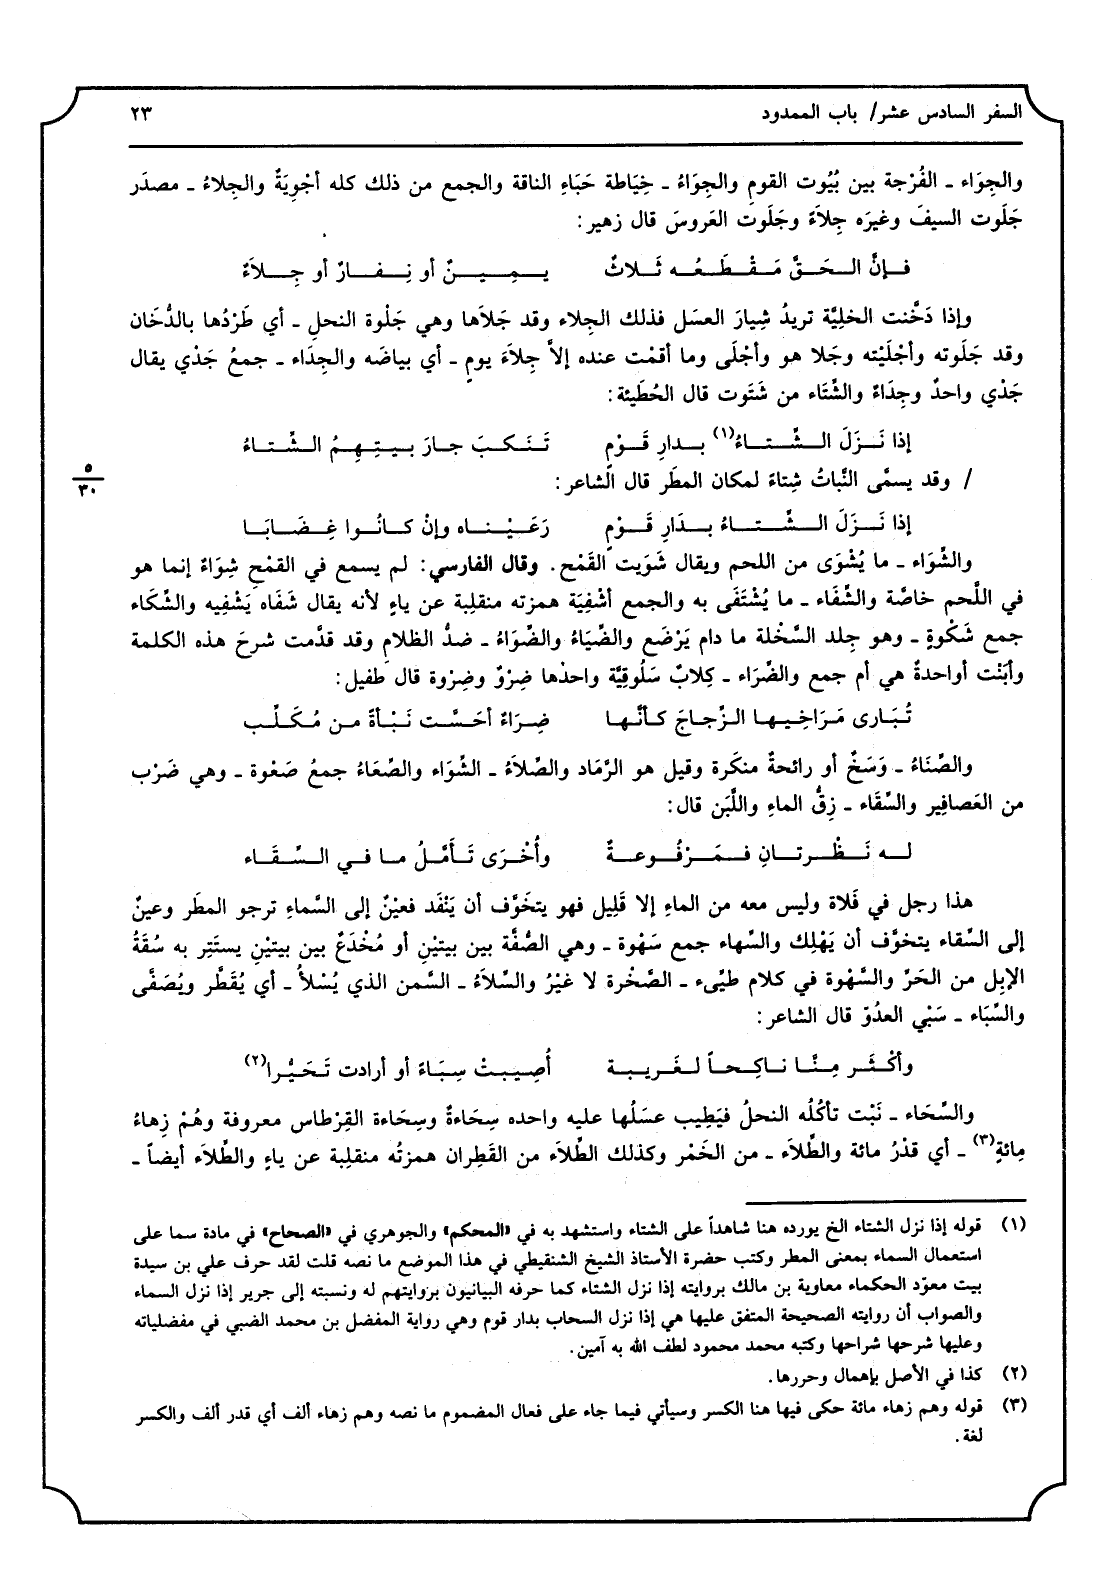 السفر السادس عشر/ باب الممدود ٢٣
والجِوَاء ـ الفُرْجة بين بُيُوت القوم والجِوَاءُ ـ خِيَاطة حَيَاءِ الناقة والجمع من ذلك كله أجْوِيَةٌ والجِلاءُ ـ مصدَر
جَلَوت السيفَ وغيرَه جِلاَءً وجَلَوت العَروسَ قال زهير:
فـإنَّ الـحَقَّ مَـقْـطَعُـه ثَـلاثٌ يـمِـيـنٌ أو نِـفـارٌ أو جِـلاَءٌ
وإذا دَخَّنت الخلِيَّة تريدُ شِيارَ العسَل فذلك الجِلاء وقد جَلاَها وهي جَلْوة النحلِ ـ أي طَرْدُها بالدُّخَان
وقد جَلَوته وأجْلَيْته وجَلا هو وأجْلَى وما أقمْت عنده إلاَّ جِلاَءَ يومٍ ـ أي بياضَه والجِدَاء ـ جمعُ جَدْي يقال
جَدْي واحدٌ وجِدَاءٌ والشِّتَاء من شَتَوت قال الحُطَيئة:
إذا نَـزَلَ الـشِّـتـاءُ(١) بـدارِ قَـوْمٍ تَـنَـكبَ جـارَ بـيـتِـهِـمُ الـشِّـتـاءُ
/ وقد يسمَّى النَّباتُ شِتاءً لمكان المطَر قال الشاعر:
٥
٣٠
إذا نَـزَلَ الـشَّـتـاءُ بـدَارِ قَـوْمٍ رَعَـيْـنـاه وإنْ كـانُـوا غِـضَـابَـا
والشِّوَاء ـ ما يُشْوَى من اللحم ويقال شَوَيت القَمْح. وقال الفارسي: لم يسمع في القمْحِ شِوَاءٌ إنما هو
في اللَّحم خاصَّة والشِّفَاء ـ ما يُشْتَفَى به والجمع أشْفِيَة همزته منقلِبة عن ياءٍ لأنه يقال شَفَاه يَشْفِيه والشِّكَاء
جمع شَكْوةٍ ـ وهو جِلد السَّخْلة ما دام يَرْضَع والضِّيَاءُ والضِّوَاءُ ـ ضدُّ الظلامِ وقد قدَّمت شرحَ هذه الكلمة
وأبَنْت أواحدةٌ هي أم جمع والضِّرَاء ـ كِلابٌ سَلُوقِيَّة واحدْها ضِرْوٌ وضِرْوة قال طفيل:
تُـبَـارى مَـرَاخِـيـهـا الـزِّجاجَ كـأنَّـهـا ضِـرَاءٌ أحَـسَّـت نَـبْـأةً مـن مُـكَـلِّـب
والصِّنَاءُ ـ وَسَخٌ أو رائحةٌ منكَرة وقيل هو الرَّمَاد والصِّلاَءُ ـ الشِّوَاء والصِّعَاءُ جمعُ صَعْوة ـ وهي ضَرْب
من العَصافِير والسِّقَاء ـ زِقُّ الماءِ واللَّبَن قال:
لـه نَـظْـرتـانِ فـمَـرْفُـوعـةٌ وأُخْـرَى تَـأَمَّـلُ مـا فـي السِّـقَـاء
هذا رجل في فَلاة وليس معه من الماءِ إلا قَلِيل فهو يتخوَّف أن يَنْفَد فعيْنٌ إلى السَّماءِ ترجو المطَر وعينٌ
إلى السِّقاء يتخوَّف أن يَهْلِك والسِّهاء جمع سَهْوة ـ وهي الصُّفَّة بين بيتيْنِ أو مُخْدَعٌ بين بيتيْنِ يستَتِر به سُقَةُ
الإبِل من الحَرِّ والسَّهْوة في كلام طيِّىء ـ الصَّخْرة لا غيْرُ والسِّلاَءُ ـ السَّمن الذي يُسْلأُ ـ أي يُقَطَّر ويُصَفَّى
والسِّبَاء ـ سَبْي العدُوّ قال الشاعر:
وأكْـثَـر مِـنَّـا نـاكِـحـاً لـغَـريـبـة أُصِـيـبـتْ سِـبَـاءً أو أرادت تَـحَـيُّـرا(٢)
والسِّحَاء ـ نَبْت تأكُلُه النحلُ فيَطِيب عسَلُها عليه واحده سِحَاءةٌ وسِحَاءة القِرْطاس معروفة وهُمْ زِهاءُ
مِائةٍ(٣) ـ أي قدْرُ مائة والطِّلاَء ـ من الخَمْر وكذلك الطِّلاَء من القَطِران همزتُه منقلِبة عن ياءٍ والطِّلاَء أيضاً ـ
(١) قوله إذا نزل الشتاء الخ يورده هنا شاهداً على الشتاء واستشهد به في «المحكم» والجوهري في «الصحاح» في مادة سما على
استعمال السماء بمعنى المطر وكتب حضرة الأستاذ الشيخ الشنقيطي في هذا الموضع ما نصه قلت لقد حرف علي بن سيدة
بيت معوّد الحكماء معاوية بن مالك بروايته إذا نزل الشتاء كما حرفه البيانيون بروايتهم له ونسبته إلى جرير إذا نزل السماء
والصواب أن روايته الصحيحة المتفق عليها هي إذا نزل السحاب بدار قوم وهي رواية المفضل بن محمد الضبي في مفضلياته
وعليها شرحها شراحها وكتبه محمد محمود لطف الله به آمين.
(٢) كذا في الأصل بإهمال وحررها.
(٣) قوله وهم زهاء مائة حكى فيها هنا الكسر وسيأتي فيما جاء على فعال المضموم ما نصه وهم زهاء ألف أي قدر ألف والكسر
لغة.